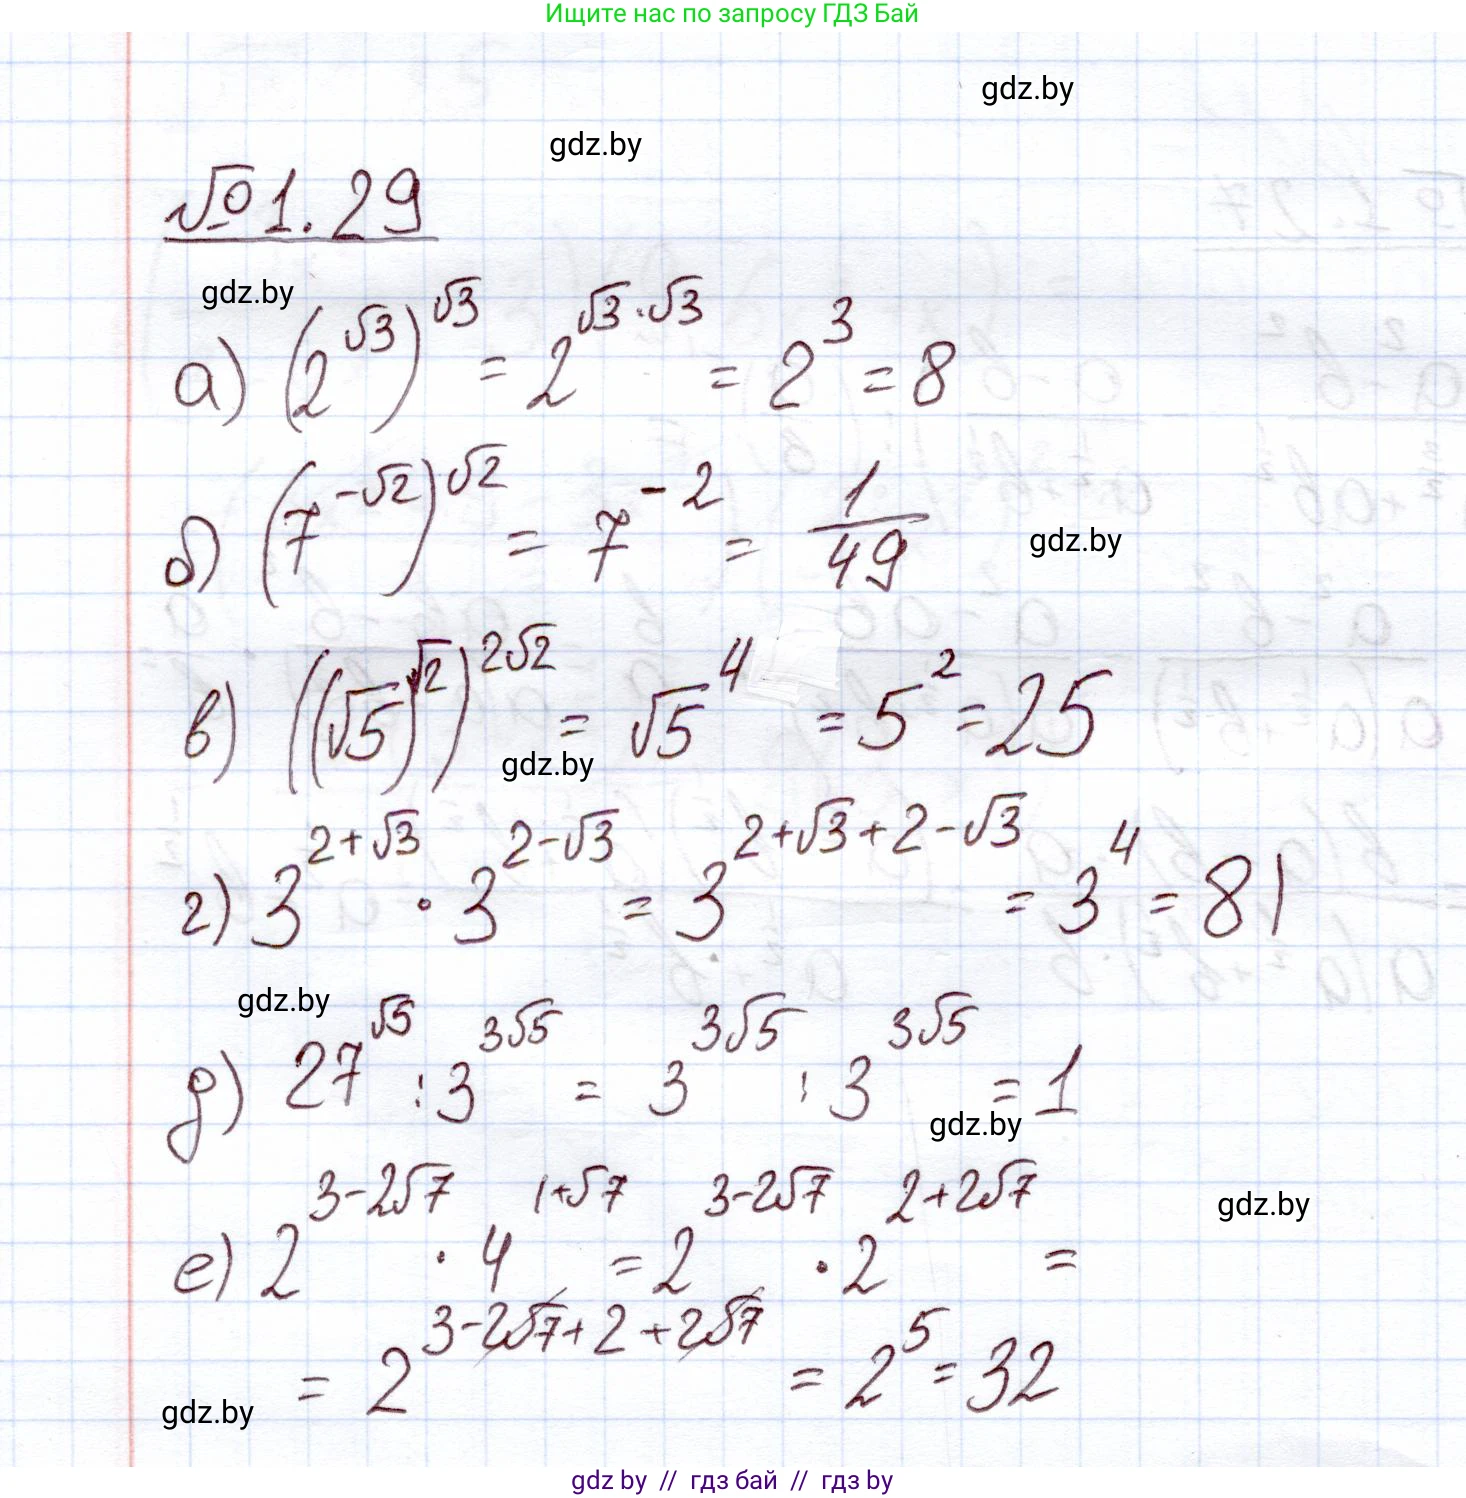 Ищите нас по запросу ГДЗ Бай
gdz.by
gdz.by
№1.29
gdz.by
а) (2^√3)^√3 = 2^(√3·√3) = 2^3 = 8
б) (7^(-√2))^√2 = 7^(-2) = 1/49
gdz.by
в) ((√5)^√2)^(2√2) = √5^4 = 5^2 = 25
gdz.by
г) 3^(2+√3) · 3^(2-√3) = 3^(2+√3+2-√3) = 3^4 = 81
gdz.by
д) 27^√5 : 3^(3√5) = 3^(3√5) : 3^(3√5) = 1
gdz.by
е) 2^(3-2√7) · 4^(1+√7) = 2^(3-2√7) · 2^(2+2√7) =
gdz.by
= 2^(3-2√7+2+2√7) = 2^5 = 32
gdz.by
gdz by // гдз бай // гдз by